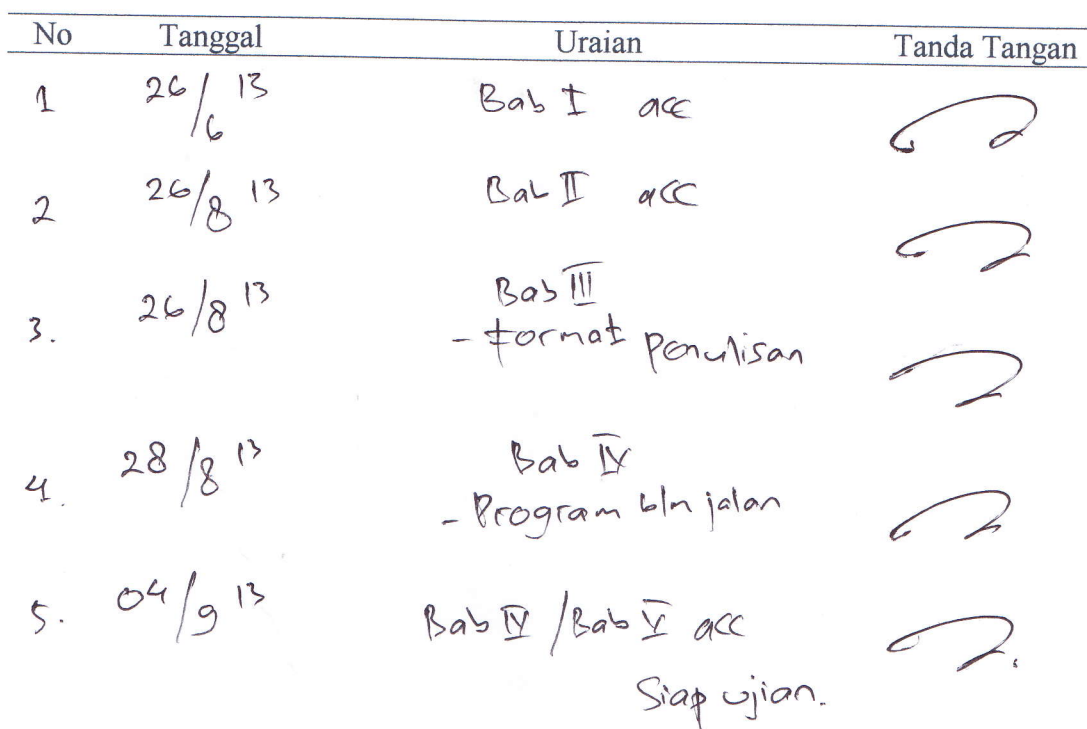 No Tanggal Uraian Tanda Tangan
1 26/6 13 Bab I acc
2 26/8 13 Bab II acc
3. 26/8 13 Bab III
- Format penulisan
4. 28/8 13 Bab IV
- Program bln jalan
5. 04/9 13 Bab IV / Bab V acc
Siap ujian.